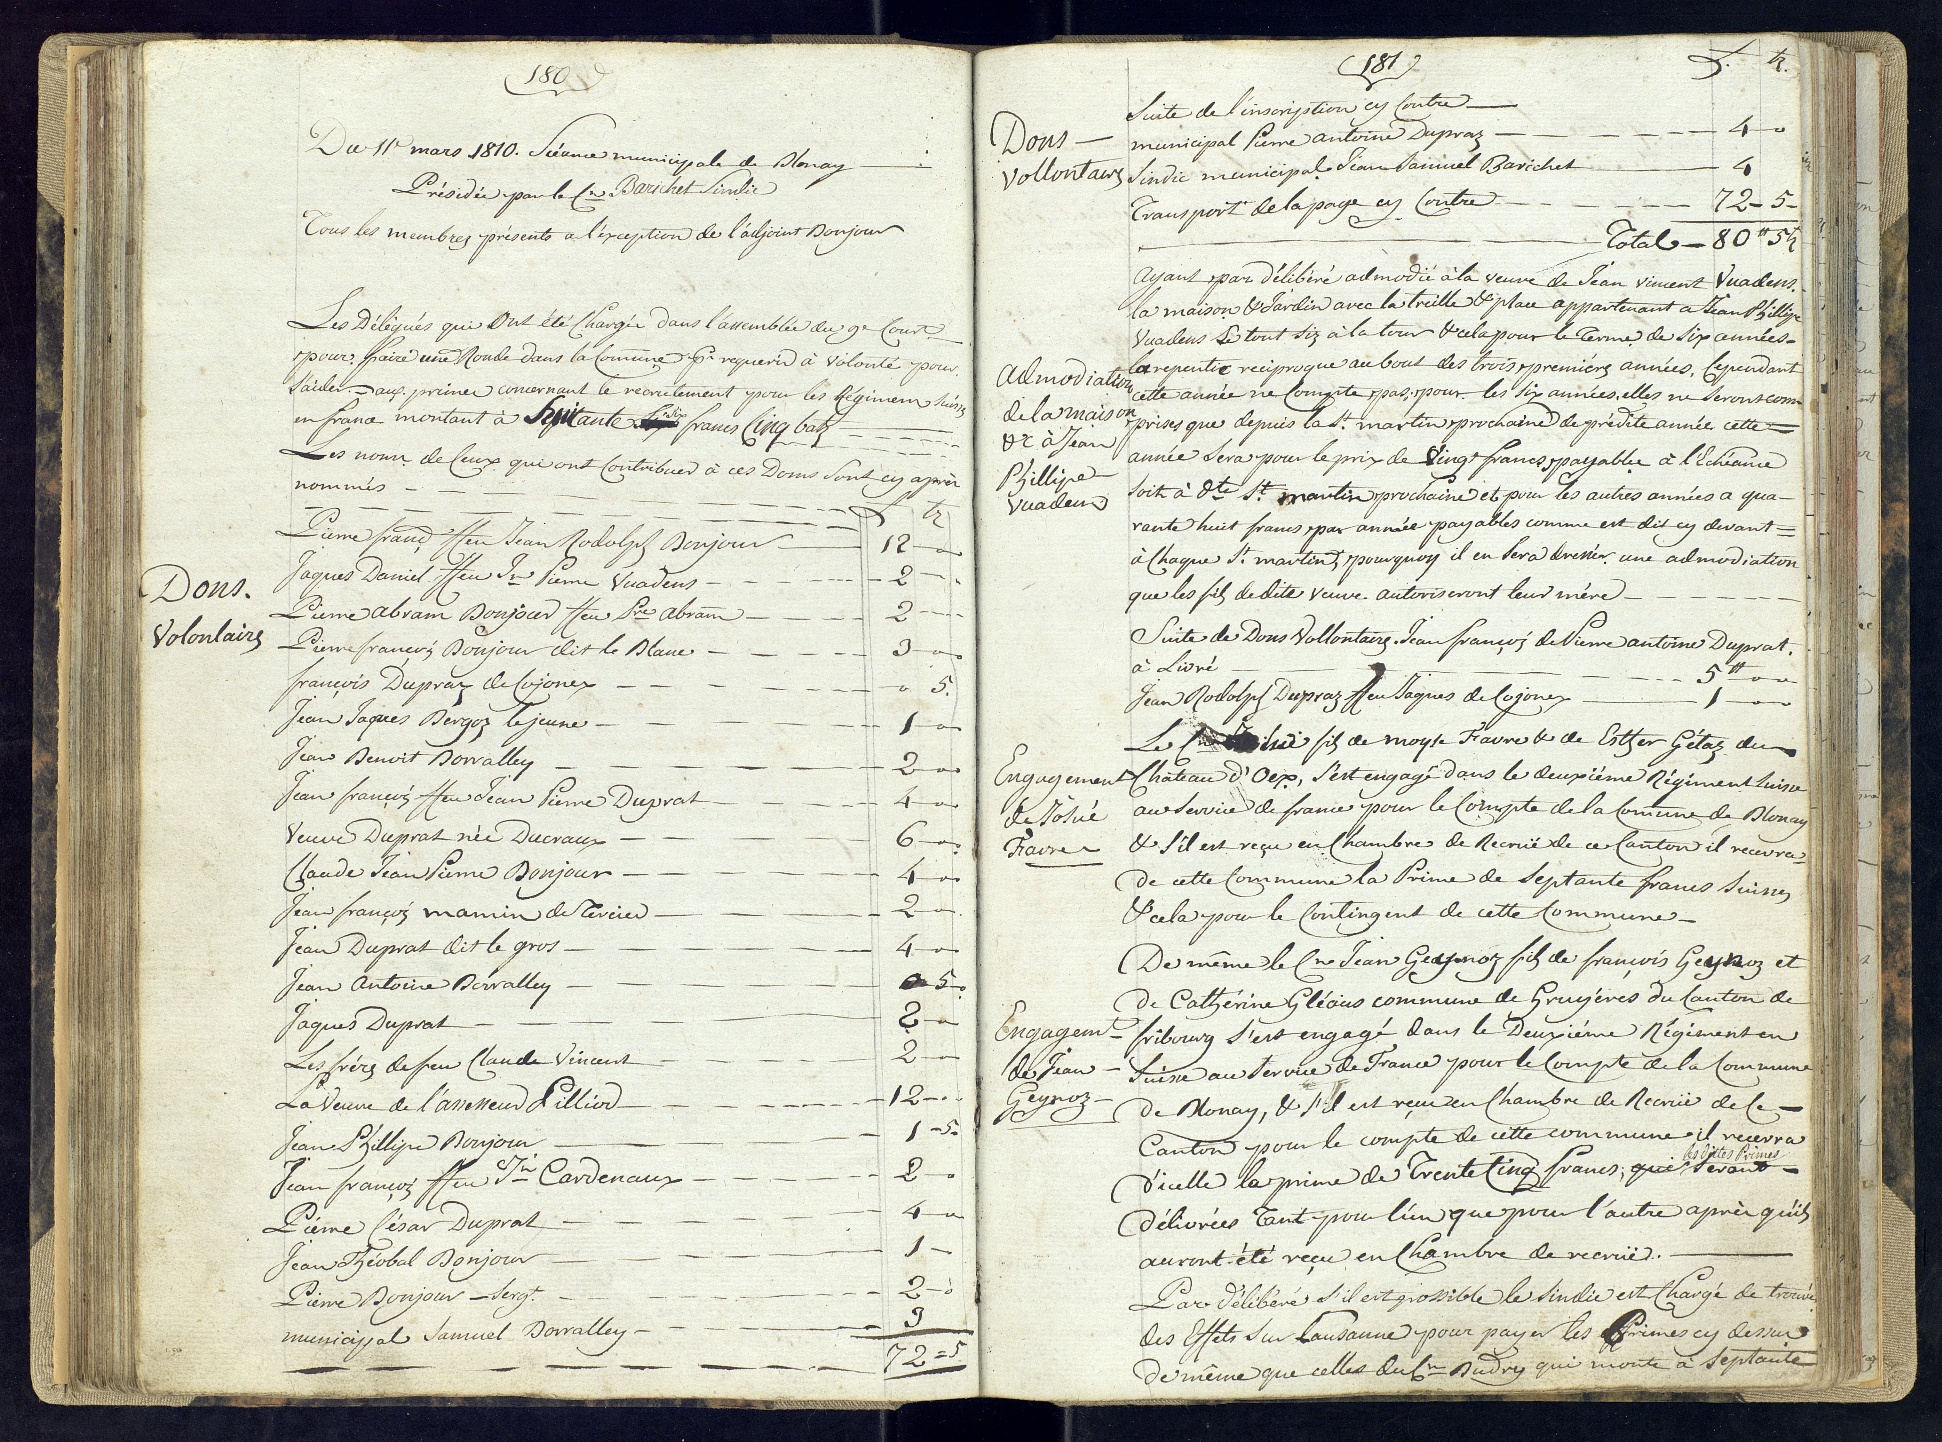 180
Du 11e mars 1810. Séance municipale de Blonay
Présidée par le Cn Barichet Sindic
Tous les membres présents a l'éxception de l'adjoint Bonjour
Les Délégués qui Ont été Chargée dans l'assemblée du 9e Cour
pour faire une Ronde dans la Comune pr requerir à volonté pour
s'aider = aux prime concernant le recrutement pour les Régimens suisses
en france montant à Huitante francs Cinq batz
Les noms de Ceux qui ont Contribuer à ces Doms sont cy après
nommés
f. bz
Pierre franç ffeu Jean Rodolph Bonjour — 12 — "
Dons.
Volontaires
Jaques Daniel ffeu Jn Pierre Vuadens — 2 —
Pierre abram Bonjour ffeu Pre abram — 2 —
Pierre françois Bonjour dit le Blanc — 3 — "
françois Dupraz de Cojonex — " 5.
Jean Jaques Bergoz le jeune — 1 — "
Jean Benoit Dorvalley — 2 — "
Jean françois ffeu Jean Pierre Duprat — 4 — "
Veuve Duprat née Ducraux — 6 — "
Claude Jean Pierre Bonjour — 4 — "
Jean françois mamin de Tercier — 2 — "
Jean Duprat dit le gros — 4 — "
Jean Antoine Dorvalley — " 5 "
Jaques Duprat — 2 — "
Les fréres de feu Claude Vincent — 2 — "
La Veuve de l'assesseur Pilliod — 12 — "
Jean Phillipe Bonjour — 1 — 5 —
Jean françois ffeu Jn Cardenaux — 2 — "
Piérre César Duprat — 4 — "
Jean Théobal Bonjour — 1 —
Pierre Bonjour — Sergt. — 2 — "
municipal Samuel Dorvalley — 3
72 = 5
181
f. bz.
Suite de l'inscription cy Contre
Dons
Vollontaires
municipal Pierre antoine Dupraz — 4 — "
Sindic municipal Jean Samuel Barichet — 4
Transport de la page cy Contre — 72 — 5 —
Total — 80 " 5 bz
Ayant par délibéré admodié à la veuve de Jean vincent Vuadens.
la maison & Jardin avec la treille & place appartenant a Jean Phillipe
Vuadens Le tout siz à la tour & cela pour le Terme de Six années =
Admodiation
de la maison
&c à Jean
Phillipe
Vuadens
la repentir reciproque au bout des trois premiéres années. Cependant
cette année ne Compte pas pour les six années, elles ne seront com-
prises que depuis la St. martin prochaine de prédite année cette =
année sera pour le prix de Vingt francs payable à l'Echéance
soit à dte St. martin prochaine et pour les autres années a qua-
rante huit francs par année payables comme est dit cy devant =
à Chaque St. martin, pourquoy il en sera dressér une admodiation
que les fils de dite veuve autoriseront leur mére
Suite de Dons Vollontaires. Jean françois de Pierre antoine Duprat.
à Livré — 5 " "
Jean Rodolph Dupraz ffeu Jaques de Cojonex — 1 — "
Engagement
de Josué
Favre
Le Cn Josué fils de moyse Favre & de Esther Gétaz du
Château d'Oex, s'est engagé dans le deuxiéme Régiment suisse
au service de france pour le Compte de la Comune de Blonay
& s'il est reçu en Chambre de Recrüe de ce Canton il recevra
de cette Commune la Prime de septante francs Suisses
& cela pour le Contingent de cette Commune —
Engagemt
de Jean
Geynoz
De même le Cn Jean Geynoz fils de françois Geynoz et
de Cathérine Gléaus commune de Gruyéres du Canton de
fribourg s'est engagé dans le Deuxiéme Régiment en
suisse au service de France pour le Compte de la Commune
de Blonay, & s'il est reçu en Chambre de Recrüe de Ce —
Canton pour le compte de cette commune il recevra
les dittes Primes
d'icelle la prime de Trente Cinq francs, qui seront —
délivrées Tant pour l'un que pour l'autre aprés qu'ils
auront été reçu en Chambre de recrüe.
Par délibéré s'il est possible le sindic est Chargé de trouvér
des Effets sur Lausanne pour payer les Primes cy dessus
de même que celles du Cn Budry qui monte à septante